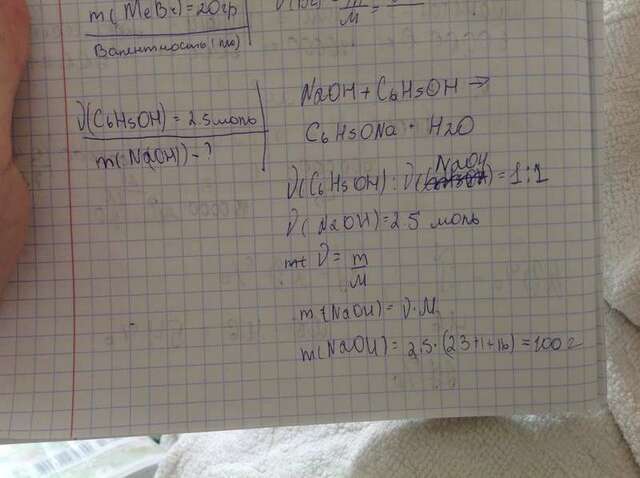 m(MeBr)=20гр
Валентность(Me)
m
M
ν(C6H5OH)=2.5моль
m(NaOH)-?
NaOH+C6H5OH→
C6H5ONa+H2O
ν(C6H5OH):ν(NaOH)=1:1
ν(NaOH)=2.5 моль
ν=m/M
m(NaOH)=ν·M
m(NaOH)=2.5·(23+1+16)=100г